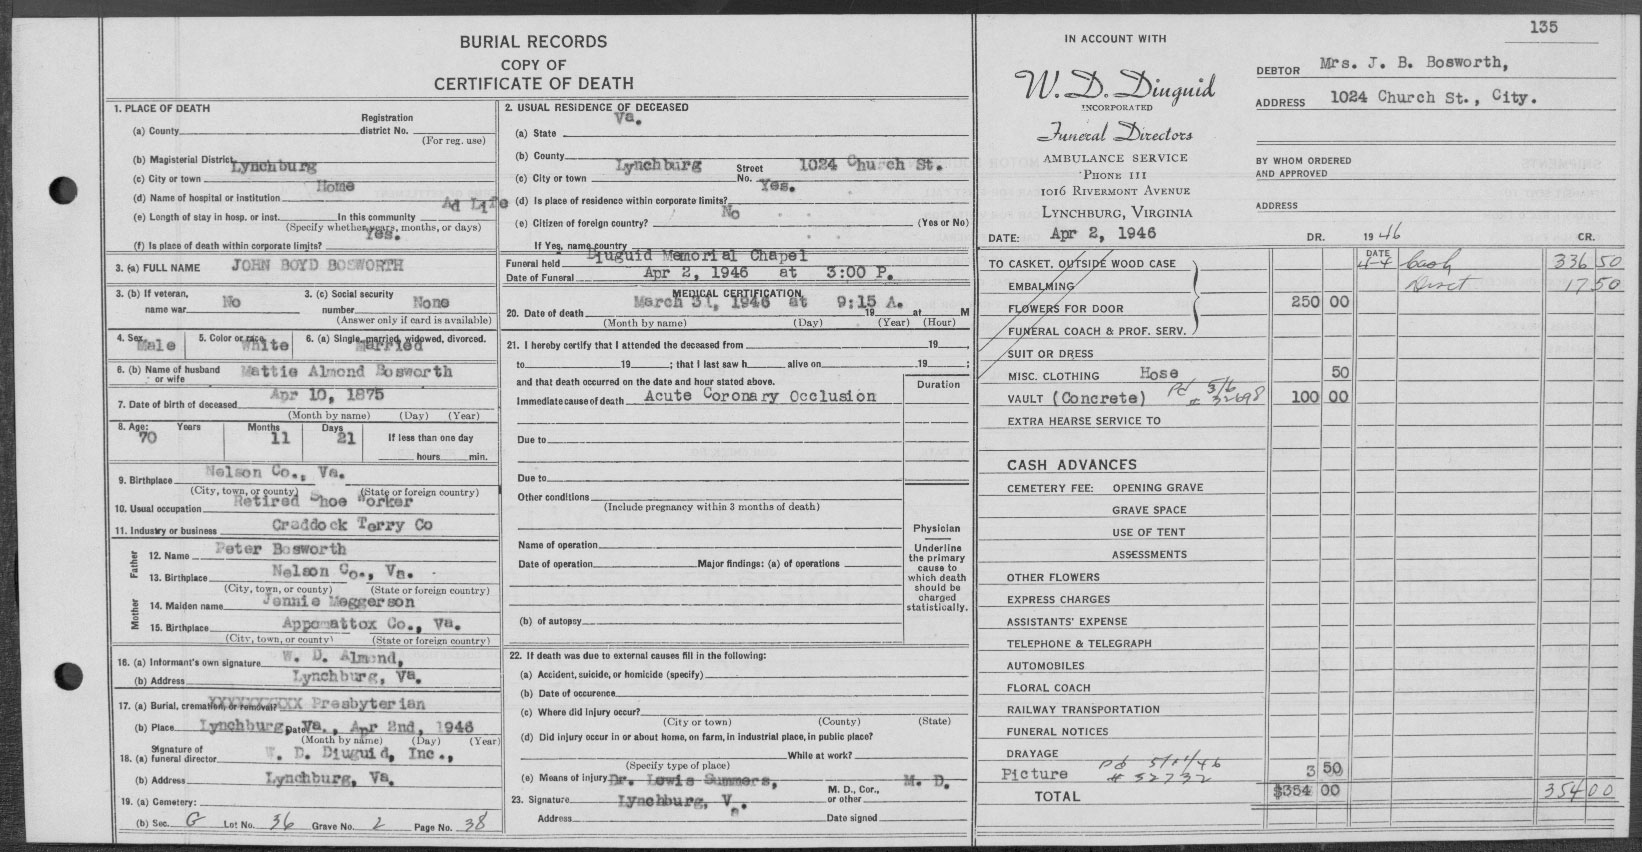 135
BURIAL RECORDS
COPY OF
CERTIFICATE OF DEATH
1. PLACE OF DEATH
(a) County
Registration district No.
(For reg. use)
(b) Magisterial District
Lynchburg
(c) City or town
Home
(d) Name of hospital or institution
Ad Life
(e) Length of stay in hosp. or inst. In this community
(Specify whether years, months, or days)
Yes.
(f) Is place of death within corporate limits?
3. (a) FULL NAME JOHN BOYD BOSWORTH
3. (b) If veteran, name war No
3. (c) Social security number None
(Answer only if card is available)
4. Sex Male
5. Color or race White
6. (a) Single, married, widowed, divorced. Married
6. (b) Name of husband or wife Mattie Almond Bosworth
Apr 10, 1875
7. Date of birth of deceased
(Month by name) (Day) (Year)
8. Age: Years Months Days
70 11 21
If less than one day
hours min.
Nelson Co., Va.
9. Birthplace
(City, town, or county) (State or foreign country)
Retired Shoe Worker
10. Usual occupation
Craddock Terry Co
11. Industry or business
Father
Peter Bosworth
12. Name
Nelson Co., Va.
13. Birthplace
(City, town, or county) (State or foreign country)
Mother
Jennie Meggerson
14. Maiden name
Appomattox Co., Va.
15. Birthplace
(City, town, or county) (State or foreign country)
W. D. Almond,
16. (a) Informant's own signature
Lynchburg, Va.
(b) Address
17. (a) Burial, cremation, or removal? XXXXXXXXXX Presbyterian
(b) Place Lynchburg, Va., Date Apr 2nd, 1946
(Month by name) (Day) (Year)
18. (a) Signature of funeral director W. D. Diuguid, Inc.,
(b) Address Lynchburg, Va.
19. (a) Cemetery:
(b) Sec. G Lot No. 36 Grave No. 2 Page No. 38
2. USUAL RESIDENCE OF DECEASED
Va.
(a) State
(b) County
Lynchburg Street No. 1024 Church St.
(c) City or town
Yes.
(d) Is place of residence within corporate limits?
No
(e) Citizen of foreign country? (Yes or No)
If Yes, name country
Diuguid Memorial Chapel
Funeral held
Apr 2, 1946 at 3:00 P.
Date of Funeral
MEDICAL CERTIFICATION
March 31, 1946 at 9:15 A.
20. Date of death 19 at M
(Month by name) (Day) (Year) (Hour)
21. I hereby certify that I attended the deceased from 19 ,
to 19 ; that I last saw h alive on 19 ;
and that death occurred on the date and hour stated above.
Duration
Immediate cause of death Acute Coronary Occlusion
Due to
Due to
Other conditions
(Include pregnancy within 3 months of death)
Name of operation
Date of operation Major findings: (a) of operations
(b) of autopsy
Physician
Underline the primary cause to which death should be charged statistically.
22. If death was due to external causes fill in the following:
(a) Accident, suicide, or homicide (specify)
(b) Date of occurence
(c) Where did injury occur?
(City or town) (County) (State)
(d) Did injury occur in or about home, on farm, in industrial place, in public place?
While at work?
(Specify type of place)
(e) Means of injury Dr. Lewis Summers, M. D.
23. Signature Lynchburg, Va. M. D., Cor., or other
Address Date signed
IN ACCOUNT WITH
W. D. Diuguid
INCORPORATED
Funeral Directors
AMBULANCE SERVICE
PHONE 111
1016 RIVERMONT AVENUE
LYNCHBURG, VIRGINIA
DATE: Apr 2, 1946
DEBTOR Mrs. J. B. Bosworth,
ADDRESS 1024 Church St., City.
BY WHOM ORDERED
AND APPROVED
ADDRESS
DR. 1946 CR.
DATE
TO CASKET, OUTSIDE WOOD CASE 4-4 Cash 336 50
EMBALMING Disct 17 50
FLOWERS FOR DOOR 250 00
FUNERAL COACH & PROF. SERV.
SUIT OR DRESS
MISC. CLOTHING Hose 50
VAULT (Concrete) Pd 5/6 # 32698 100 00
EXTRA HEARSE SERVICE TO
CASH ADVANCES
CEMETERY FEE: OPENING GRAVE
GRAVE SPACE
USE OF TENT
ASSESSMENTS
OTHER FLOWERS
EXPRESS CHARGES
ASSISTANTS' EXPENSE
TELEPHONE & TELEGRAPH
AUTOMOBILES
FLORAL COACH
RAILWAY TRANSPORTATION
FUNERAL NOTICES
DRAYAGE
Picture Pd # 32732 3 50
TOTAL $354 00 354 00